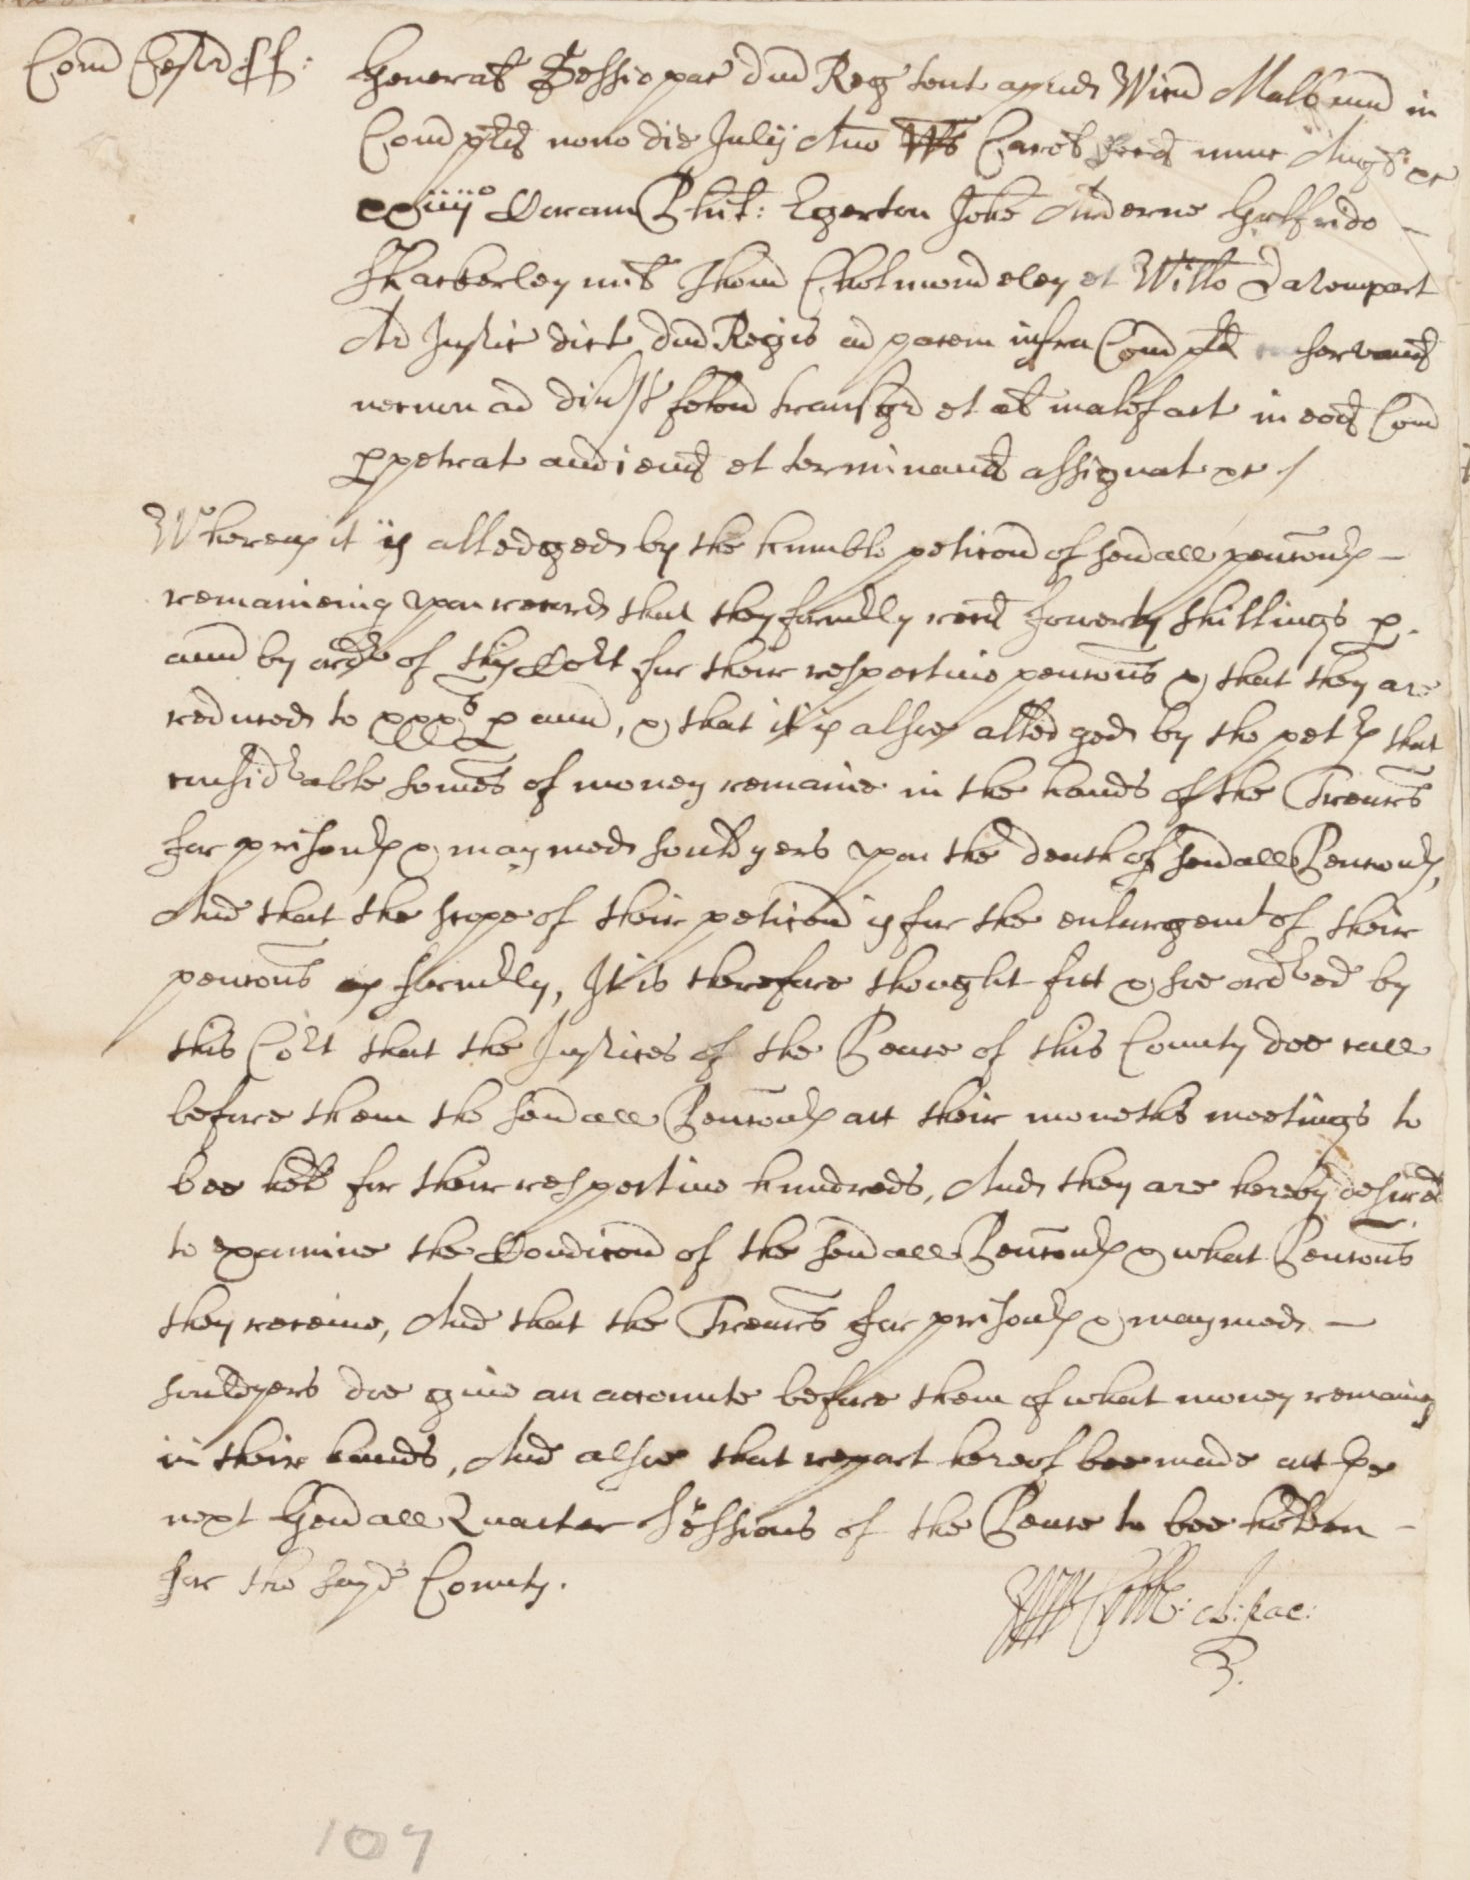 Com Cestr ss:
General Sessio pac dni Reg tent apud Wico Malbanu in
Com pred nono die Julij Anno Caroli nunc Angl &c
xxiiij° Coram Phil: Egerton Johe Arderne Galfrido
Shackerley mil Thom Cholmondeley et Willo Davenport
Ar Justic dict dni Regis ad pacem infra Com pred conservand
necnon ad divs felon transgr et al malefact in eod Com
ppetrat audiend et terminand assignat &c /
Whereas it is alledged by the humble peticon of sevall penconrs
remaineing upon record that they formrly recd fowerty shillings p
ann by ordr of this Cort for their respective pencons & that they are
reduced to xxxs p ann, & that it is alsoe alledged by the petrs that
considrable somes of money remaine in the hands of the Treaurs
for prisonrs & maymed souldyers upon the death of sevall Penconrs,
And that the scope of their peticon is for the enlargemt of their
pencons as formrly, It is therefore thought fitt & soe ordred by
this Cort that the Justices of the Peace of this County doe call
before them the sevall Penconrs att their moneths meetings to
bee held for their respective hundreds, And they are hereby desired
to examine the Condicon of the sevall Penconrs & what Pencons
they receive, And that the Treaurs for prisonrs & maymed
souldyers doe give an accounte before them of what money remaines
in their hands, And alsoe that report hereof bee made att ye
next Genall Quarter Sessions of the Peace to bee holden
for the sayd County.
: cl: pac:
107